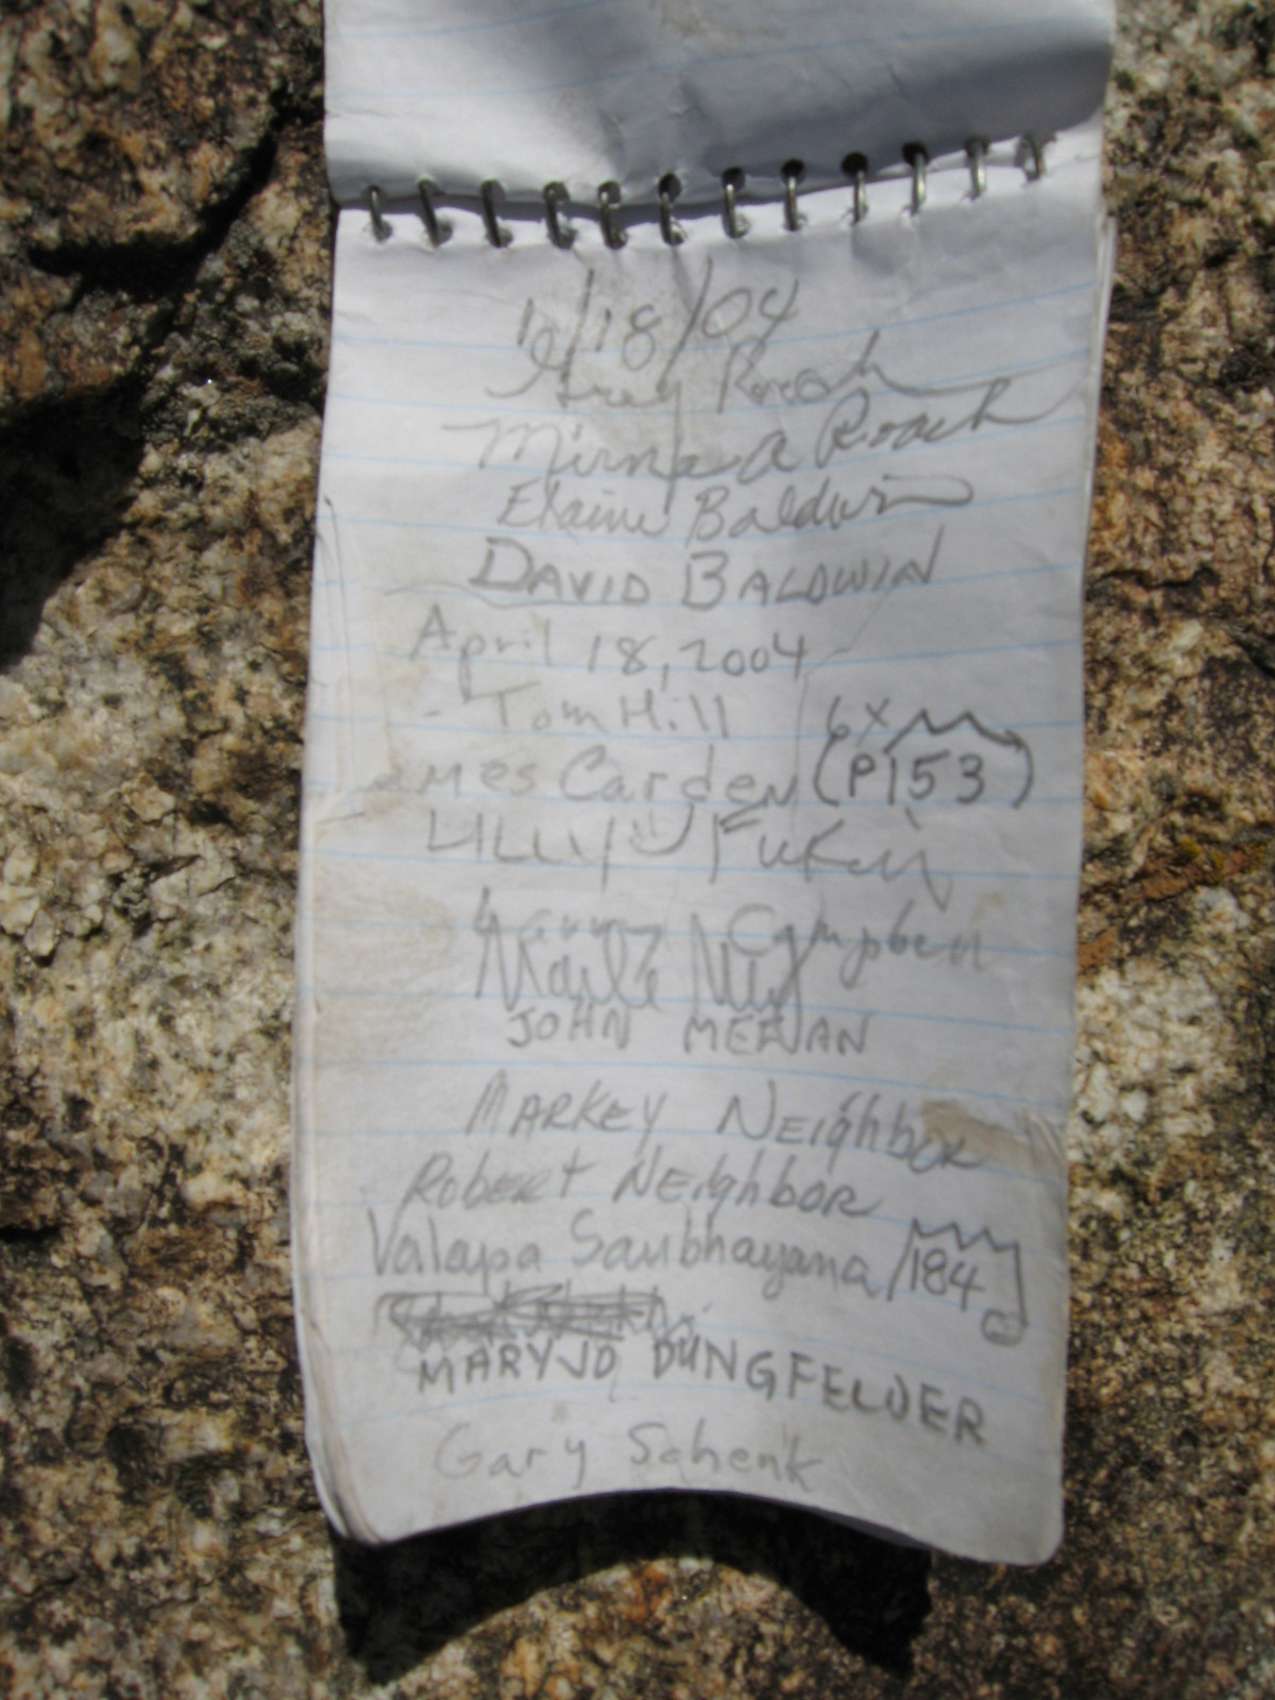 /18/04
Greg Roach
Mirna A Roach
Elaine Baldwin
DAVID BALDWIN
April 18, 2004
- Tom Hill
mes Carden
6X
(P153)
LILLY
Campbell
JOHN MEEHAN
MARKEY NEighboR
RobERt NEighboR
Saubhayana
184
MARYJO DUNGFELDER
Gary Schenk